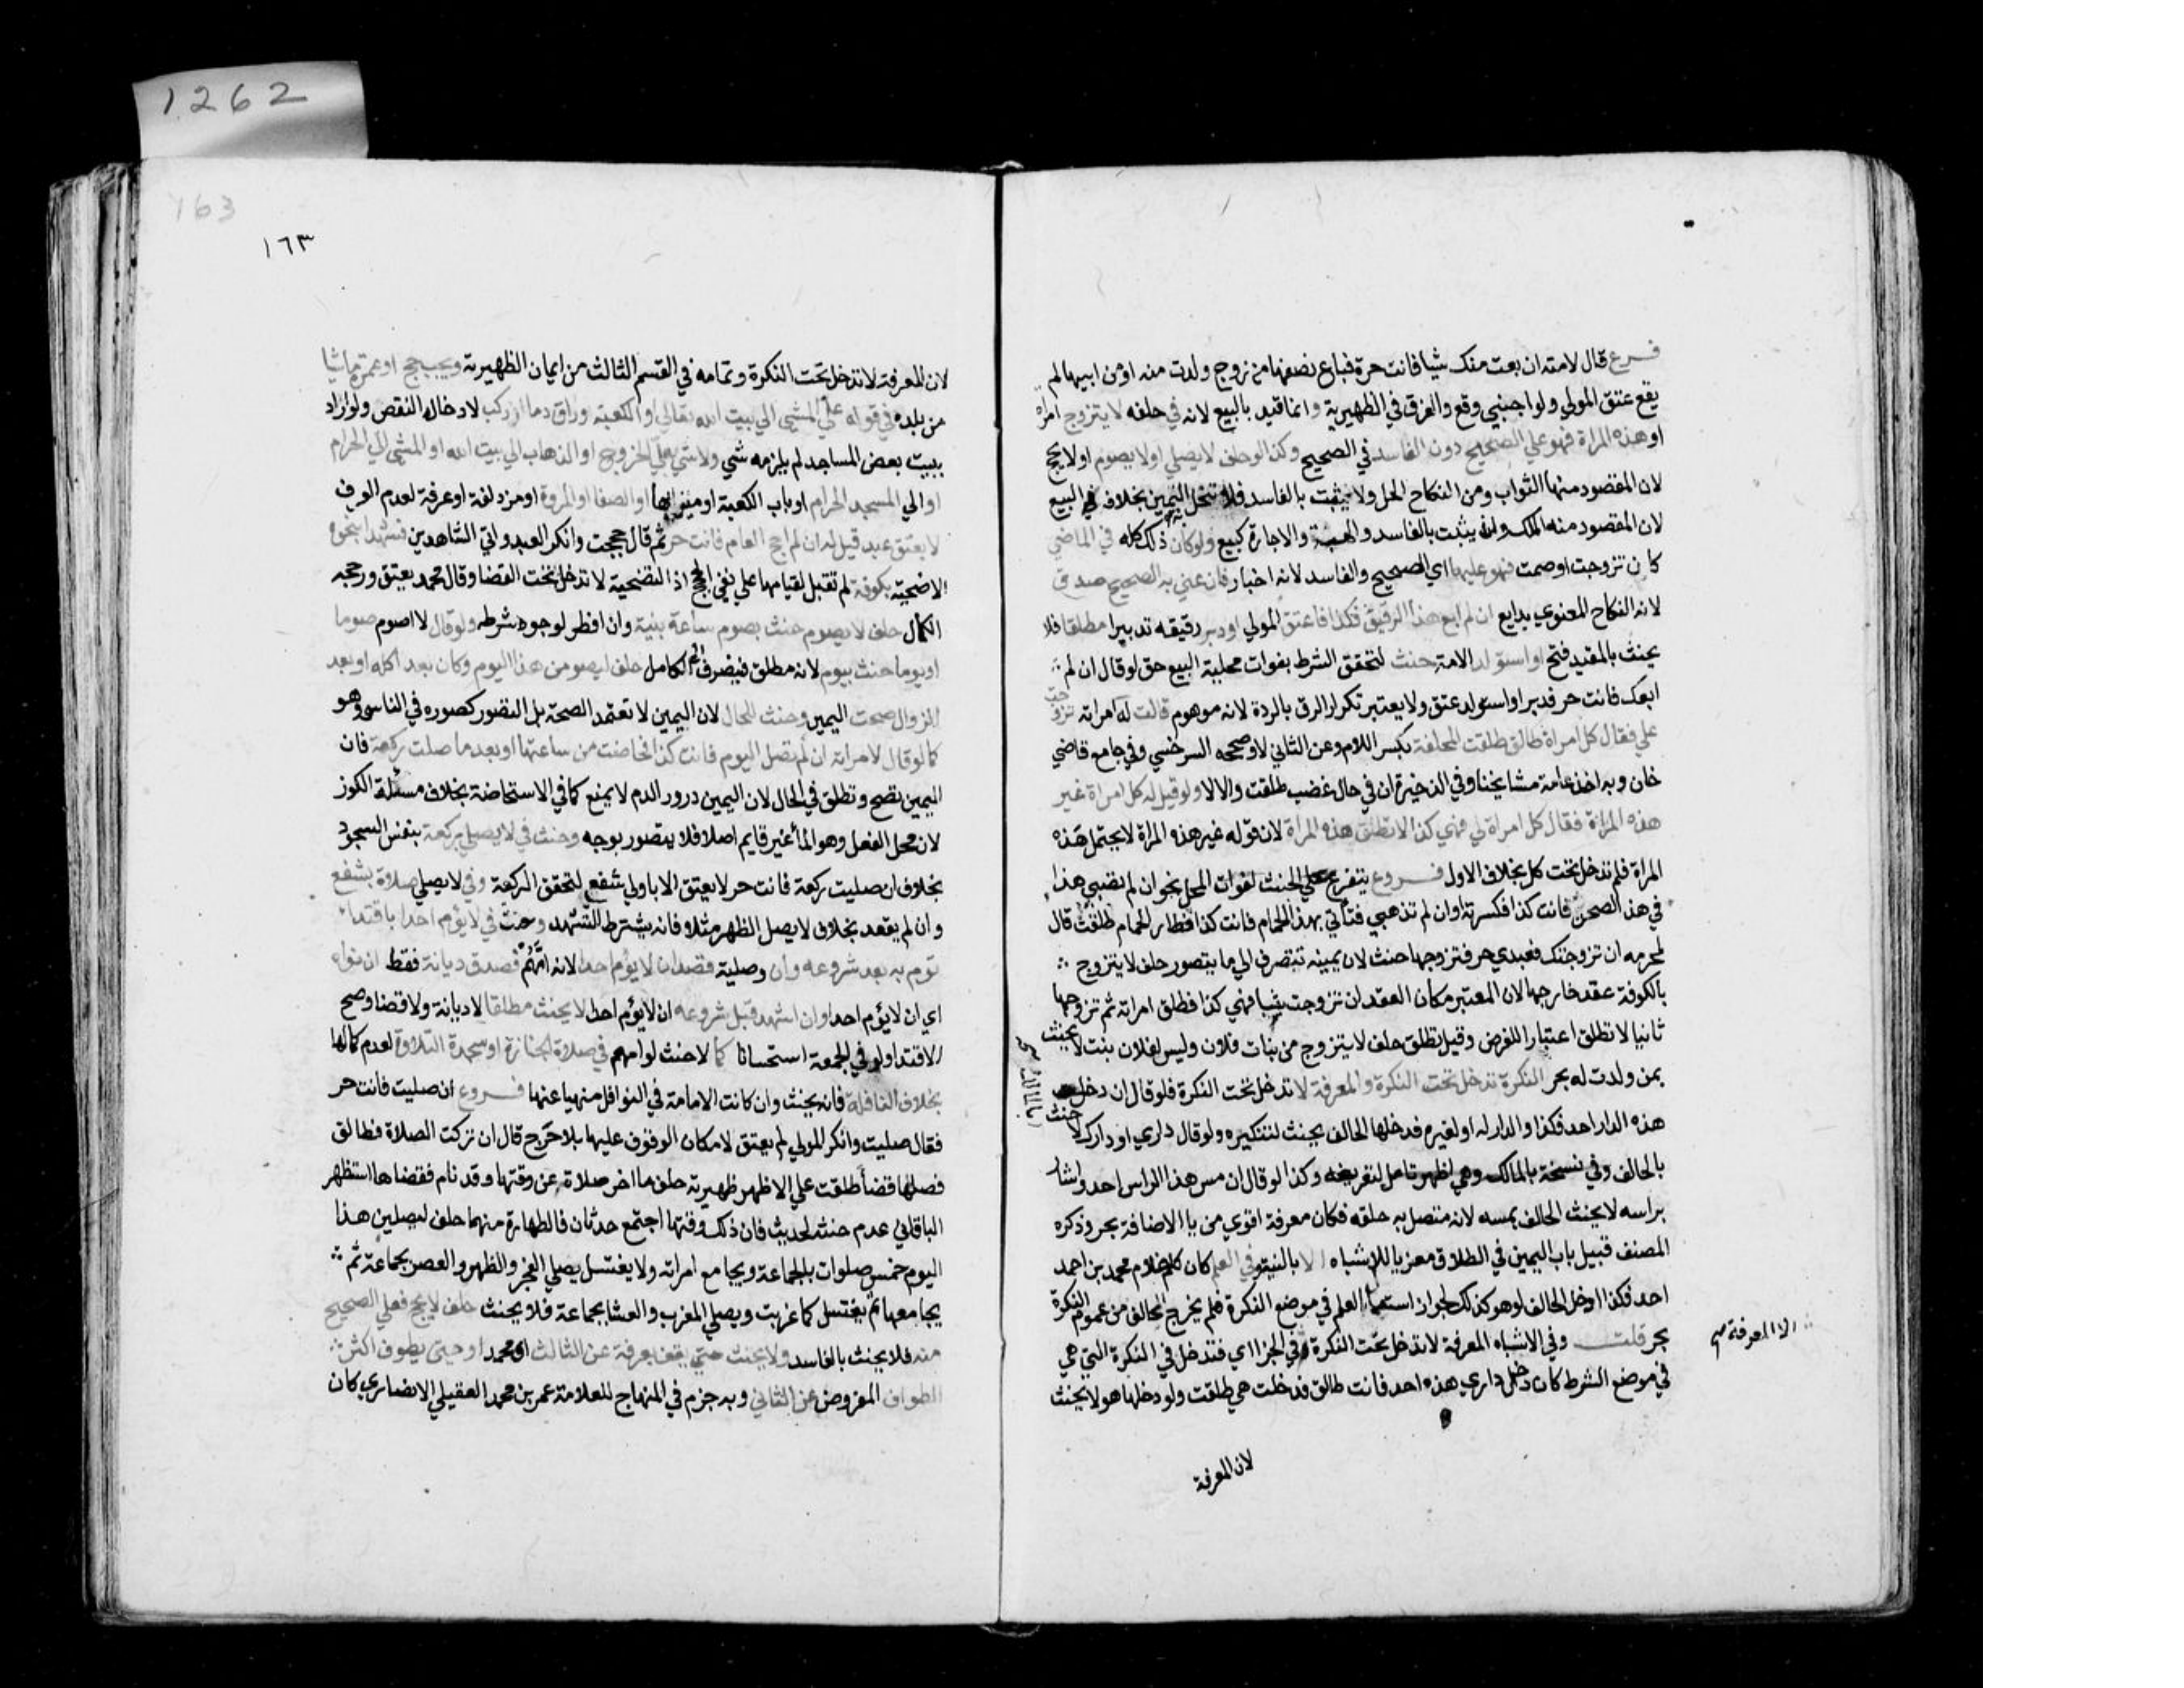 فرع قال لامته ان بعت منك شيا فانت حرة فباع نصفها من زوج ولدت منه او من ابيها لم
يقع عتق المولي ولو اجنبي وقع والفرق في الظهيرية وانما قيد بالبيع لانه في حلفه لا يتزوج امراة
او هذه المراة فهو علي الصحيح دون الفاسد في الصحيح وكذا لو حلف لا يصلي او لا يصوم او لا يحج
لان المقصود منها الثواب ومن النكاح الحل ولا يثبت بالفاسد فلا تنحل اليمين بخلاف البيع
لان المقصود منه الملك وانه يثبت بالفاسد والهبة والاجارة كبيع ولو كان ذلك كله في الماضي
كان تزوجت او صمت فهو عليهما اي الصحيح والفاسد لانه اخبار فان عني به الصحيح صدق
لانه النكاح المعنوي بدايع ان لم ابع هذا الرقيق فكذا فاعتق المولي او دبر رقيقه تدبيرا مطلقا فلا
يحنث بالمقيد فتح او استولد الامة حنث لتحقق الشرط بفوات محلية البيع حتي لو قال ان لم
ابعك فانت حر فدبر او استولد عتق ولا يعتبر تكرار الرق بالردة لانه موهوم قالت له امراته تزوجت
علي فقال كل امراة طالق طلقت المحلفة بكسر اللام وعن الثاني لا وصححه السرخسي وفي جامع قاضي
خان وبه اخذ عامة مشايخنا وفي الذخيرة ان في حال غضب طلقت والا لا ولو قيل له كل امراة غير
هذه المراة فقال كل امراة لي فهي كذا لا تطلق هذه المراة لان قوله غير هذه المراة لا يحتمل هذه
المراة فلم تدخل تحت كل بخلاف الاول فروع يتفرع علي الحنث لفوات المحل نحو ان لم تصبي هذا
في هذا الصحن فانت كذا فكسرته او ان لم تذهبي فتأتي بهذا الحمام فانت كذا فطار الحمام طلقت قال
لمحرمه ان تزوجتك فعبدي حر فتزوجها حنث لان يمينه تنصرف الي ما يتصور حلف لا يتزوج
بالكوفة عقد خارجها لان المعتبر مكان العقد ان تزوجت ثيبا فهي كذا فطلق امراته ثم تزوجها
ثانيا لا تطلق اعتبارا للغرض وقيل تطلق حلف لا يتزوج من بنات فلان وليس لفلان بنت لا يحنث
بمن ولدت له بحر النكرة تدخل تحت النكرة والمعرفة لا تدخل تحت النكرة فلو قال ان دخل
هذه الدار احد فكذا والدار له او لغيره فدخلها الحالف يحنث لتنكيره ولو قال داري او دارك لا حنث
بالحالف وفي نسخة بالمالك وهي اظهر تامل لتعريفه وكذا لو قال ان مس هذا الراس احد واشار
براسه لا يحنث الحالف بمسه لانه متصل به خلقه فكان معرفة اقوي من يا الاضافة بحر وذكره
المصنف قبيل باب اليمين في الطلاق معزيا للاشباه الا بالنية وفي العلم كان كلم غلام محمد بن احمد
احد فكذا دخل الحالف لو هو كذلك لجواز استعمال العلم في موضع النكرة فلم يخرج الحالف من عموم النكرة
بحر قلت وفي الاشباه المعرفة لا تدخل تحت النكرة الا المعرفة في الجزا اي فتدخل في النكرة التي هي
في موضع الشرط كان دخل داري هذه احد فانت طالق فدخلت هي طلقت ولو دخلها هو لا يحنث
لان المعرفة
1262
163
١٦٣
لان المعرفة لا تدخل تحت النكرة وتمامه في القسم الثالث من ايمان الظهيرية ويجب حج او عمرة ماشيا
من بلده في قوله علي المشي الي بيت الله تعالي او الكعبة وراق دما ان ركب لادخاله النقص ولو اراد
ببيت بعض المساجد لم يلزمه شي ولا شي بعلي الخروج او الذهاب الي بيت الله او المشي الي الحرام
او الي المسجد الحرام او باب الكعبة او ميزابها او الصفا او المروة او مزدلفة او عرفة لعدم العرف
لا يعتق عبد قيل له ان لم احج العام فانت حر ثم قال حججت وانكر العبد واتي الشاهدين فشهدا بنحره
الاضحية بكوفة لم تقبل لقيامها علي نفي الحج اذ التضحية لا تدخل تحت القضا وقال محمد يعتق ورجحه
الكمال حلف لا يصوم حنث بصوم ساعة بنية وان افطر لوجود شرطه ولو قال لا اصوم صوما
او يوما حنث بيوم لانه مطلق فيصرف الي الكامل حلف ليصومن هذا اليوم وكان بعد اكله او بعد
الزوال صحت اليمين وحنث للحال لان اليمين لا تعتمد الصحة بل التصور كصوره في الناسي وهو
كما لو قال لامراته ان لم تصل اليوم فانت كذا فحاضت من ساعتها او بعد ما صلت ركعة فان
اليمين تصح وتطلق في الحال لان اليمين درور الدم لا يمنع كما في الاستحاضة بخلاف مسئلة الكوز
لان محل الفعل وهو الماء غير قايم اصلا فلا يتصور بوجه وحنث في لا يصلي بركعة بنفس السجود
بخلاف ان صليت ركعة فانت حر لا يعتق الا باولي شفع لتحقق الركعة وفي لا يصلي صلاة بشفع
وان لم يقعد بخلاف لا يصلي الظهر مثلا فانه يشترط التشهد وحنث في لا يؤم احدا باقتداء
قوم به بعد شروعه وان وصلية قصد ان لا يؤم احدا لانه امهم وصدق ديانة فقط ان نواه
اي ان لا يؤم احدا وان اشهد قبل شروعه ان لا يؤم احدا لا يحنث مطلقا لا ديانة ولا قضا وصح
الاقتدا ولو في الجمعة استحسانا كما لا حنث لو امهم في صلاة الجنازة او سجدة التلاوة لعدم كمالها
بخلاف النافلة فانه يحنث وان كانت الامامة في النوافل منهيا عنها فروع ان صليت فانت حر
فقال صليت وانكر المولي لم يعتق لامكان الوقوف عليها بلا حرج قال ان تركت الصلاة فطالق
فصلتها قضأ طلقت علي الاظهر ظهيرية حلف ما اخر صلاة عن وقتها وقد نام فقضاها استظهر
الباقاني عدم حنثه لحديث فان ذلك وقتها اجتمع حدثان فالطهارة منهما حلف ليصلين هذا
اليوم خمس صلوات بالجماعة ويجامع امراته ولا يغتسل يصلي الفجر والظهر والعصر بجماعة ثم
يجامعها ثم يغتسل كما غربت ويصلي المغرب والعشا بجماعة فلا يحنث حلف لا يحج فعلي الصحيح
منه فلا يحنث بالفاسد ولا يحنث حتي يقف بعرفة عن الثالث اي محمد او حتي يطوف اكثر
الطواف المفروض عن الثاني وبه جزم في المنهاج للعلامة عمر بن محمد العقيلي الانصاري كان